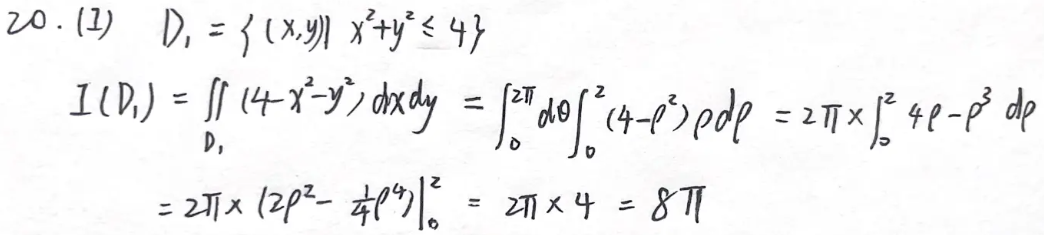 20. (I) D₁ = {(x,y)| x²+y² ≤ 4}
I(D₁) = ∬_{D₁} (4-x²-y²) dxdy = ∫₀^{2π} dθ ∫₀² (4-ρ²) ρdρ = 2π × ∫₀² 4ρ-ρ³ dρ
= 2π × (2ρ² - ¼ρ⁴)|₀² = 2π × 4 = 8π